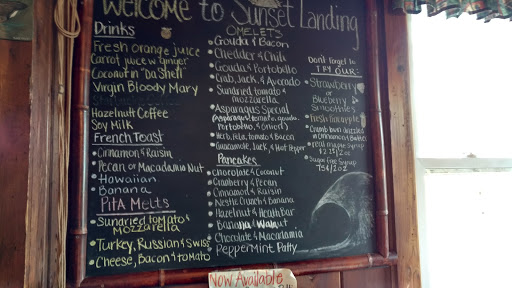 Welcome to Sunset Landing
Drinks
Fresh orange juice
Carrot juice w/ ginger
Coconut in "Da Shell"
Virgin Bloody Mary
Hazelnutt Coffee
Soy Milk
French Toast
Cinnamon & Raisin
Pecan or Macadamia Nut
Hawaiian
Banana
Pita Melts
Sundried Tomato & Mozzarella
Turkey, Russian & Swiss
Cheese, Bacon & Tomato
Omelets
Gouda & Bacon
Chedder & Chili
Gouda & Portobello
Crab, Jack, & Avocado
Sundried tomato & mozzarella
Asparagus Special
Asparagus, tomato, gouda, Portobello, & Onion
Herb, Feta, tomato & Bacon
Guacamole, Jack, & Hot Pepper
Pancakes
Chocolate & Coconut
Cranberry & Pecan
Cinnamon & Raisin
Nestle Crunch & Banana
Hazelnut & Heath Bar
Banana & Walnut
Chocolate & Macadamia
Peppermint Patty
Don't forget to
TRY OUR:
Strawberry
or
Blueberry
Smoothies
Fresh Pineapple
real maple Syrup
Sugar Free Syrup
Now Available